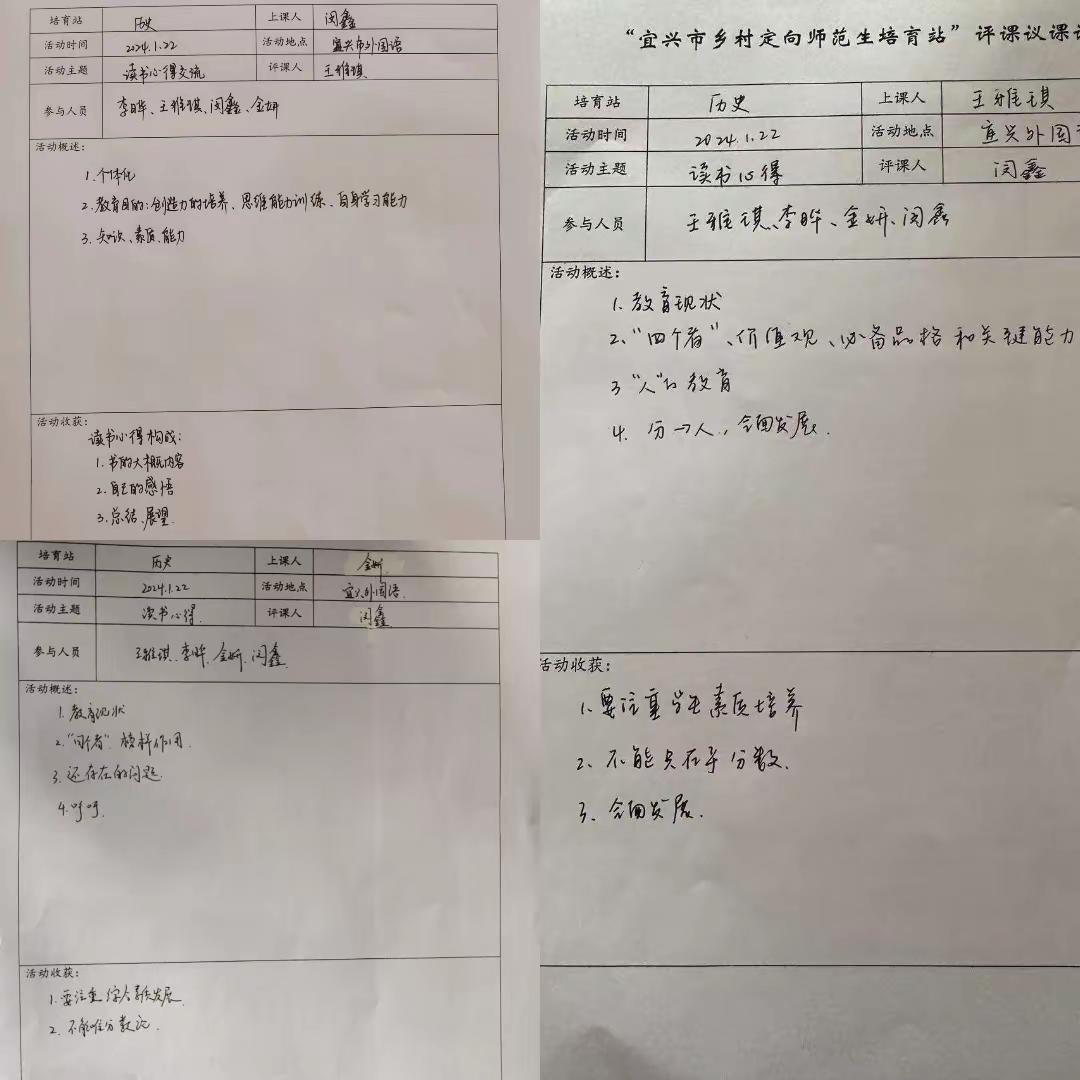 培育站 历史 上课人 闵鑫
活动时间 2024.1.22 活动地点 宜兴市外国语
活动主题 读书心得交流 评课人 王雅琪
参与人员 李晔、王雅琪、闵鑫、金妍
活动概述：
1.个体化
2.教育目的：创造力的培养、思维能力训练、自身学习能力
3.知识、素质、能力
活动收获：
读书心得构成：
1.书的大概内容
2.自己的感悟
3.总结、展望.
“宜兴市乡村定向师范生培育站”评课议课
培育站 历史 上课人 王雅琪
活动时间 2024.1.22 活动地点 宜兴外国
活动主题 读书心得 评课人 闵鑫
参与人员 王雅琪、李晔、金妍、闵鑫
活动概述：
1.教育现状
2.“四个者”、价值观、必备品格和关键能力
3“人”的教育
4.分→人，全面发展.
活动收获：
1.要注重学生素质培养
2、不能只在乎分数.
3、全面发展.
培育站 历史 上课人 金妍
活动时间 2024.1.22 活动地点 宜兴外国语.
活动主题 读书心得. 评课人 闵鑫
参与人员 王雅琪、李晔、金妍、闵鑫
活动概述：
1.教育现状
2.“四个者”榜样作用.
3.还存在的问题.
4.呼吁.
活动收获：
1.要注重综合素质发展.
2.不能唯分数论.